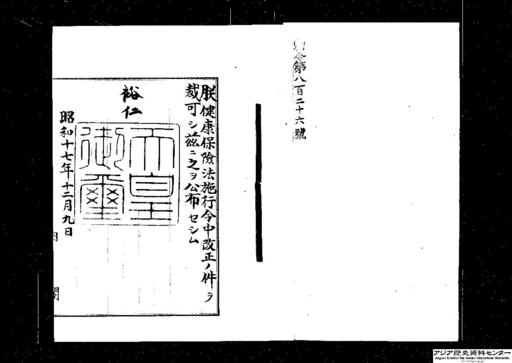 勅令第八百二十六號
朕健康保險法施行令中改正ノ件ヲ
裁可シ茲ニ之ヲ公布セシム
裕仁
天皇
御璽
昭和十七年十二月九日
内閣
アジア歴史資料センター
Japan Center for Asian Historical Records